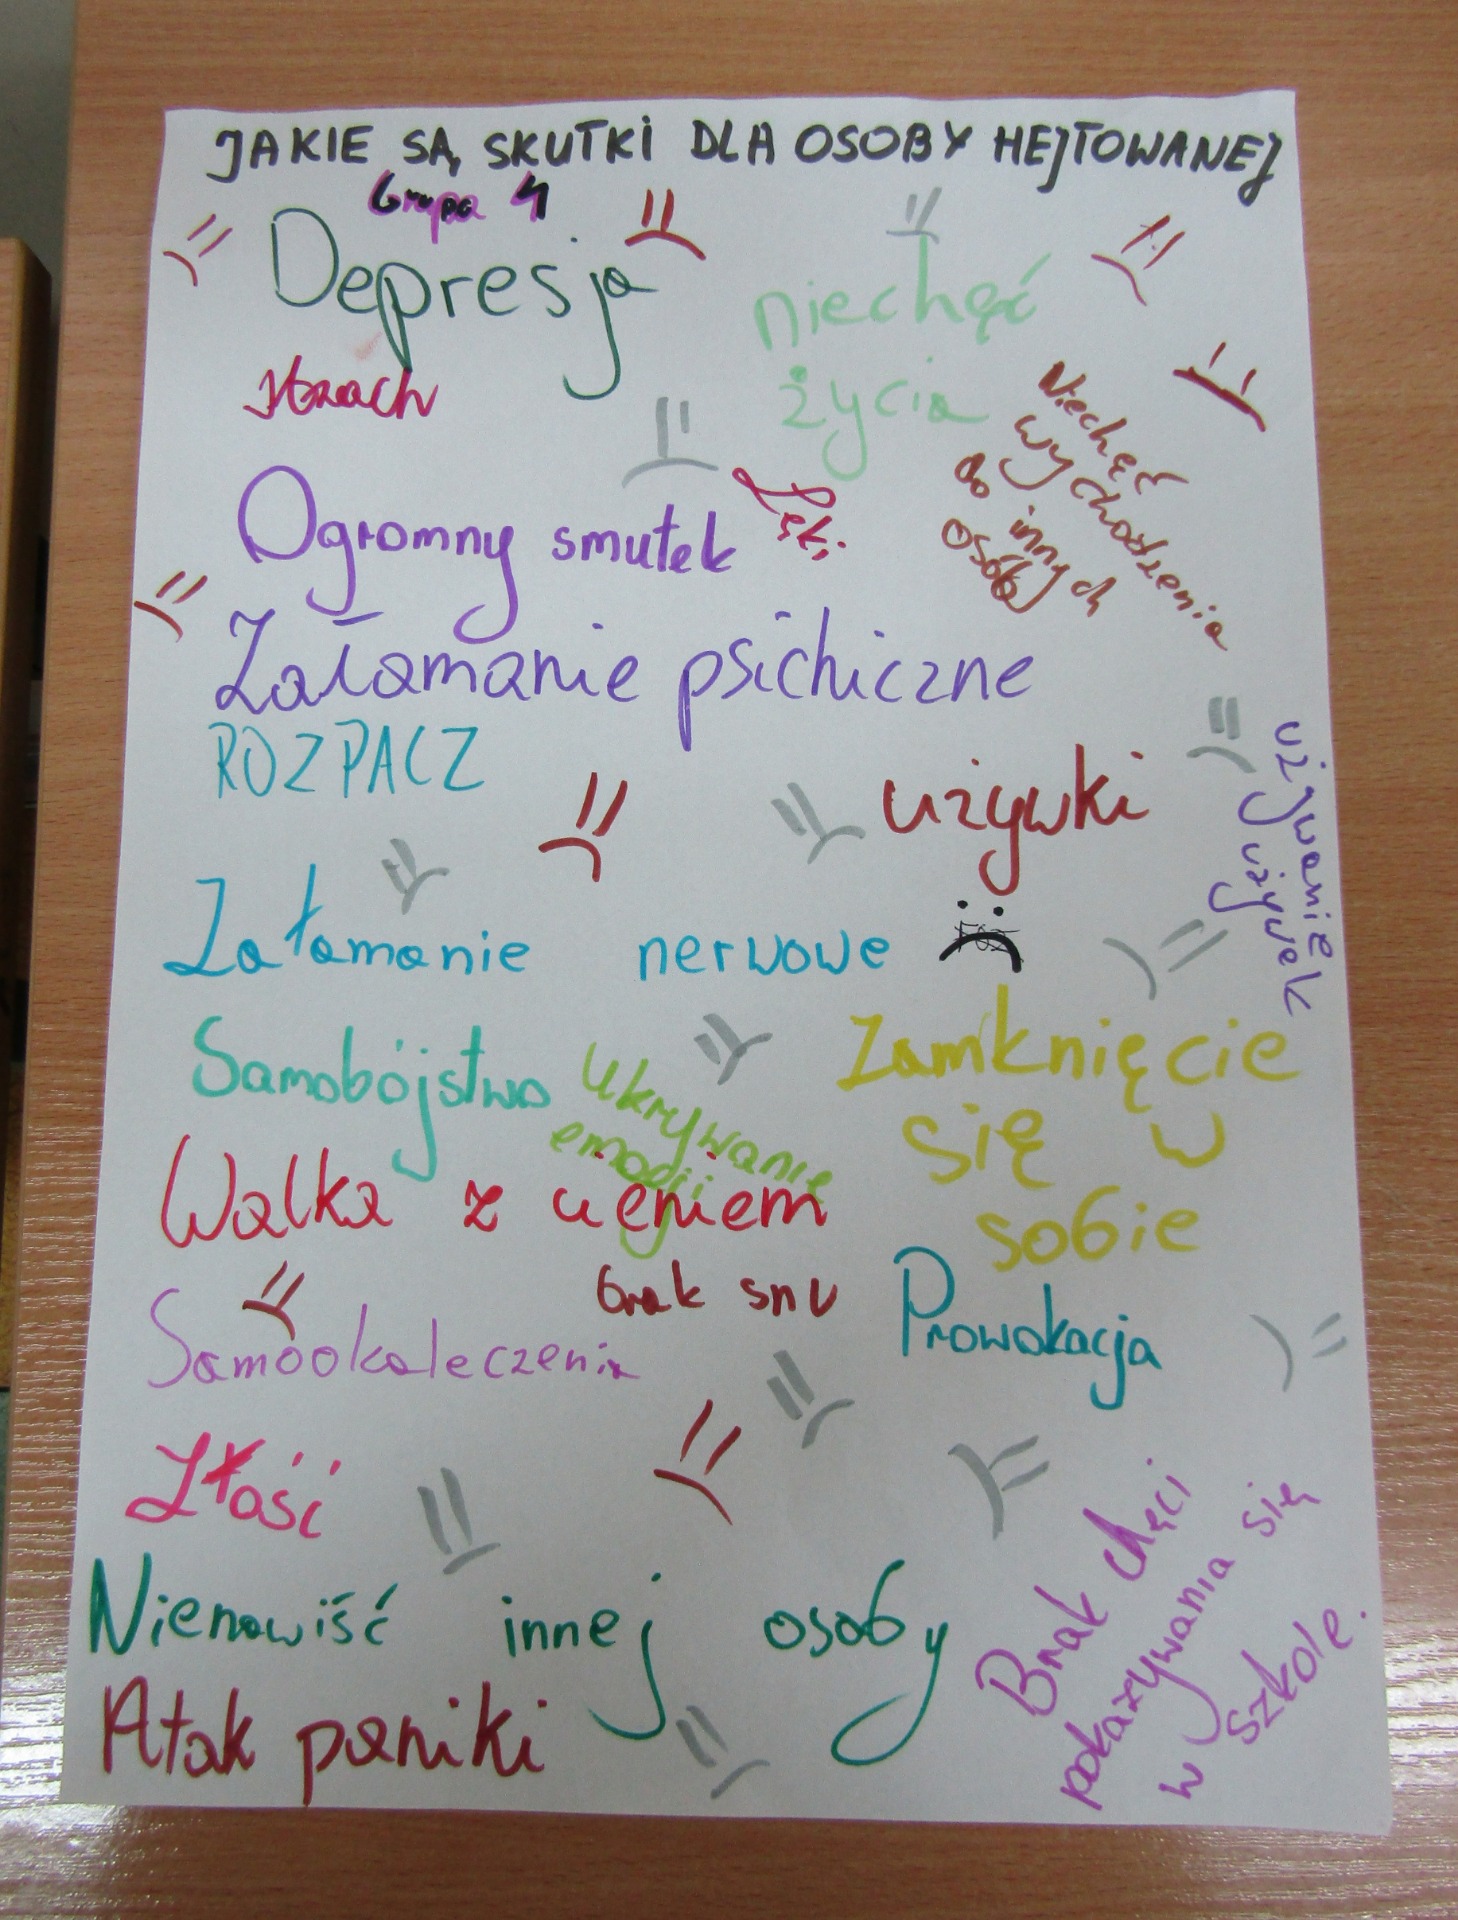 JAKIE SĄ SKUTKI DLA OSOBY HEJTOWANEJ
Grupa 4
Depresja
niechęć
życia
strach
Niechęć
wychodzenia
do innych
osób
Ogromny smutek
Lęki
Załamanie psichiczne
ROZPACZ
używki
używanie
używek
Załamanie nerwowe
Samobójstwo
Ukrywanie
emocji
Zamknięcie
się w
sobie
Walka z
brak snu
Prowokacja
Samookaleczenia
Złość
Nienawiść innej osoby
Brak chęci
pokazywania się
w szkole.
Atak paniki